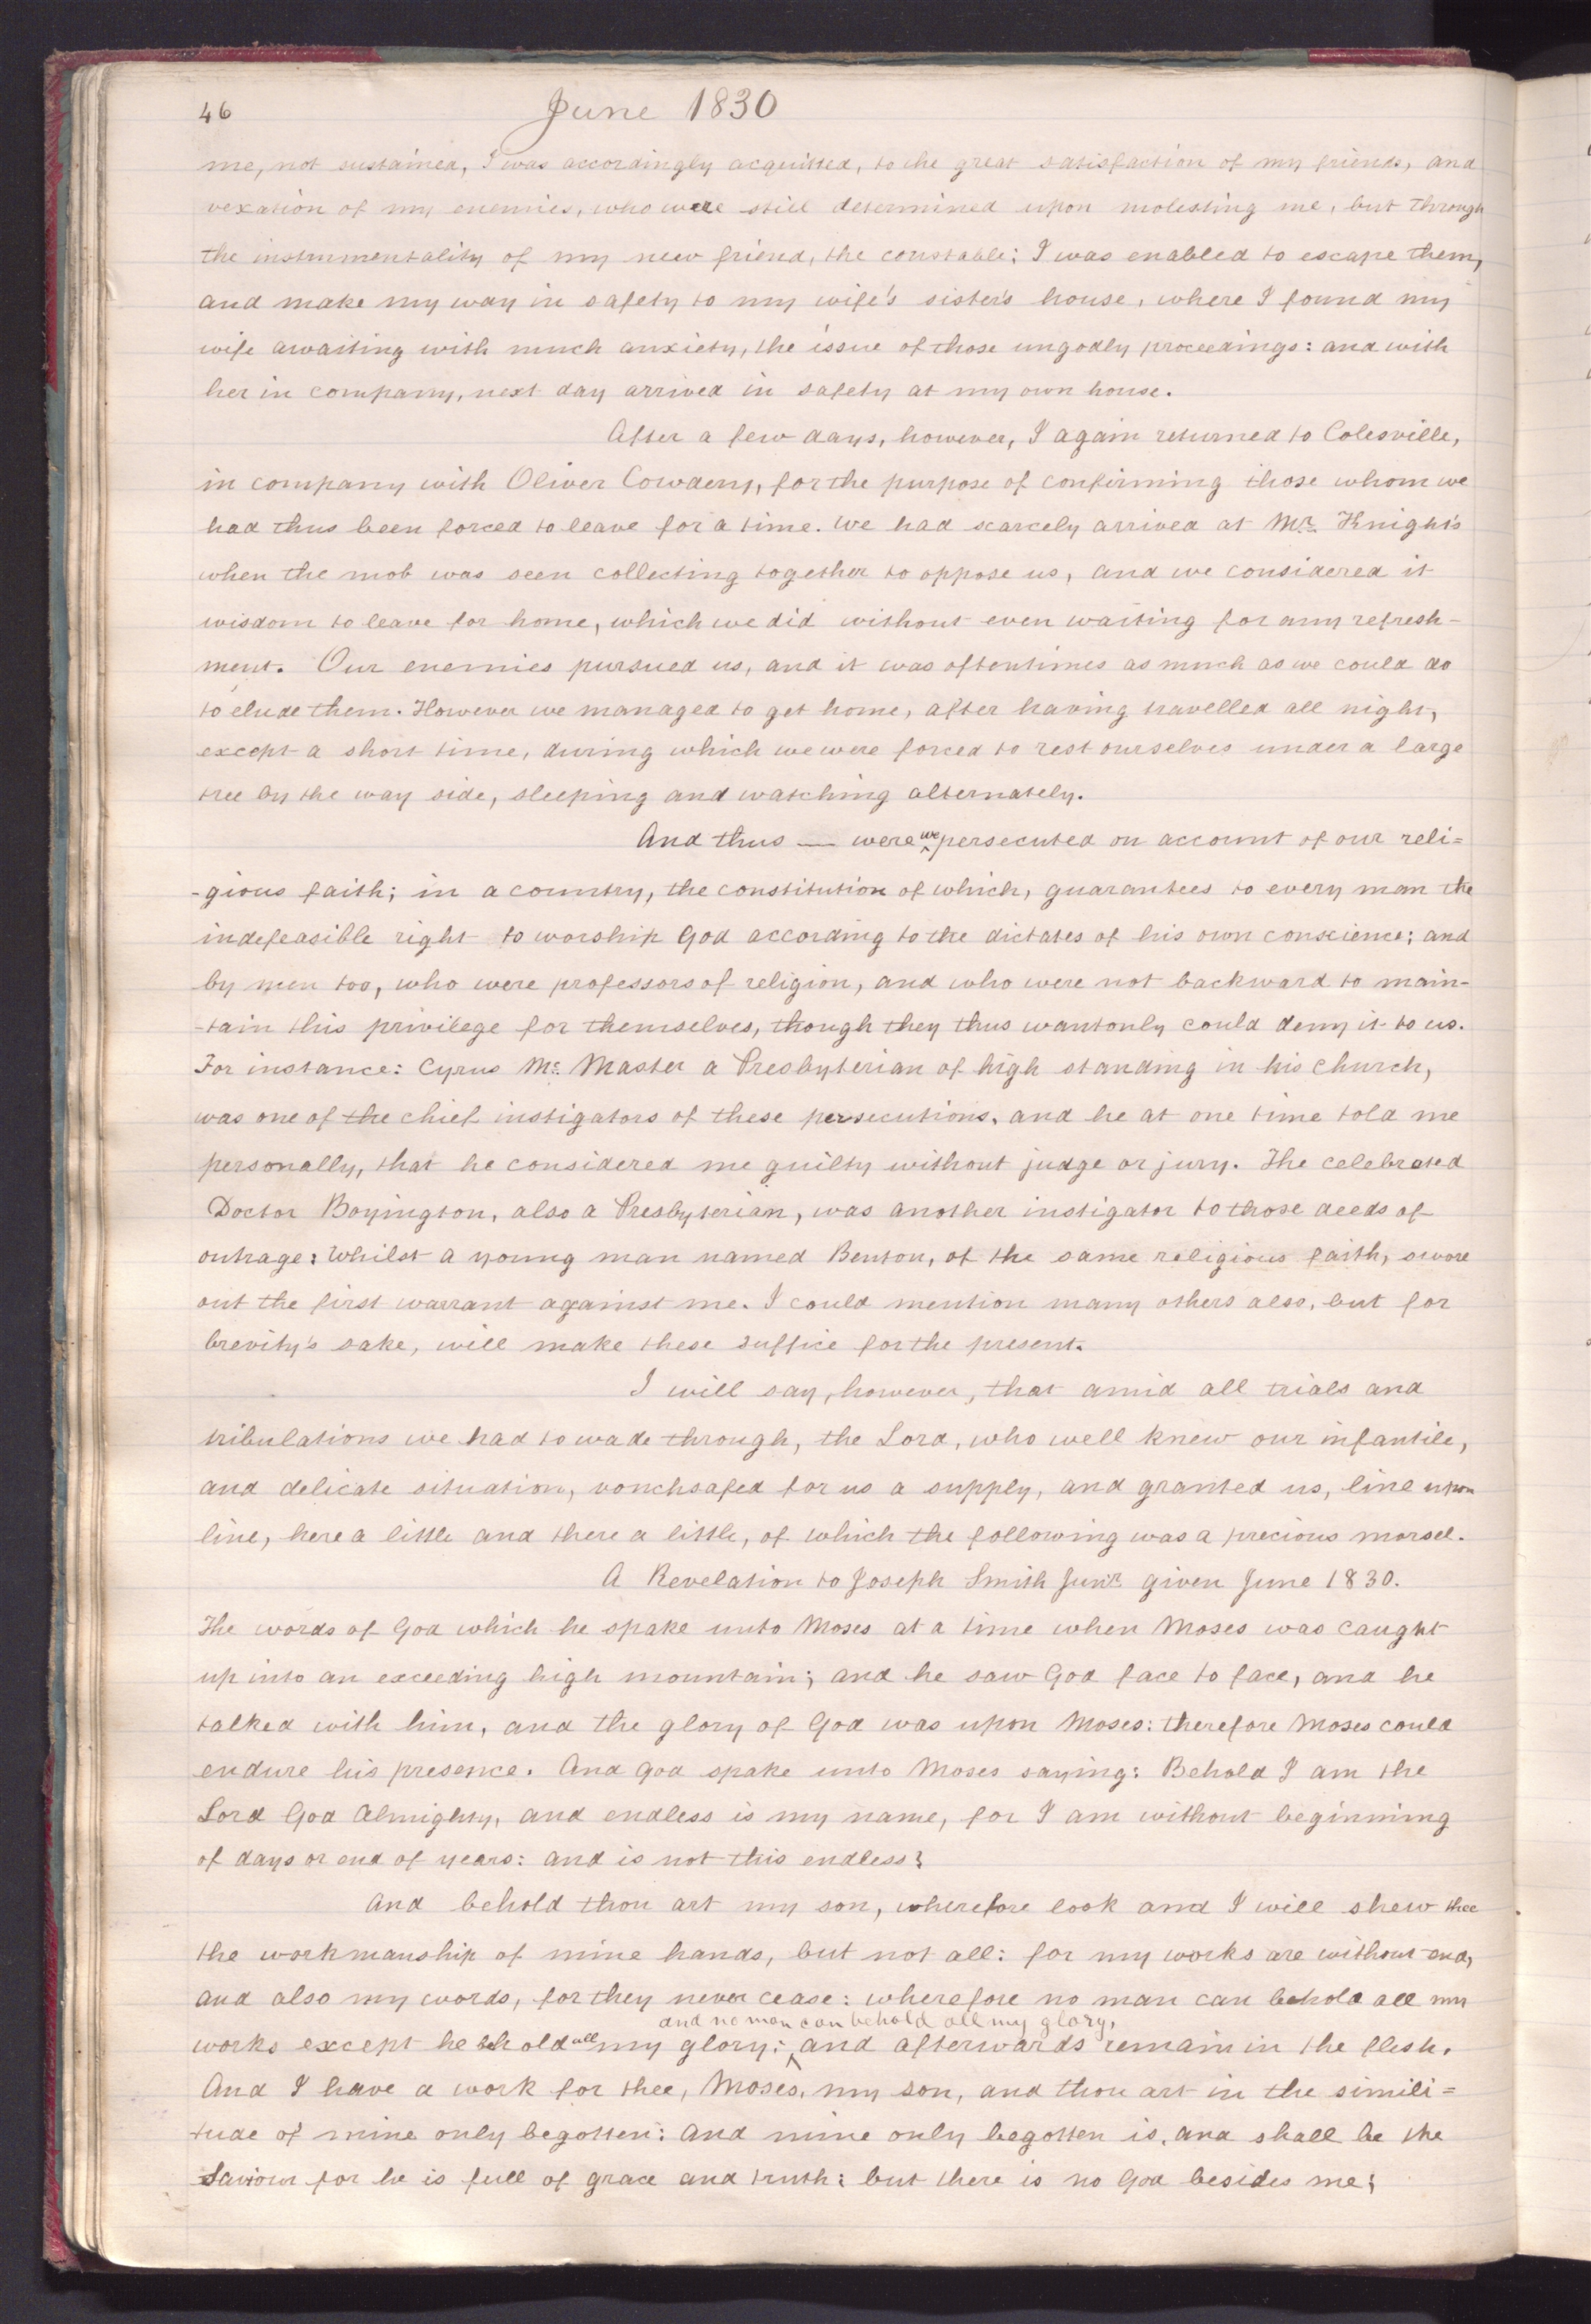 46
June 1830
me, not sustained, I was accordingly acquitted, to the great satisfaction of my friends, and
vexation of my enemies, who were still determined upon molesting me, but through
the instrumentality of my new friend, the constable; I was enabled to escape them,
and make my way in safety to my wife's sister's house, where I found my
wife awaiting with much anxiety, the issue of those ungodly proceedings: and with
her in company, next day arrived in safety at my own house.
After a few days, however, I again returned to Colesville,
in company with Oliver Cowdery, for the purpose of confirming those whom we
had thus been forced to leave for a time. We had scarcely arrived at Mr. Knight's
when the mob was seen collecting together to oppose us, and we considered it
wisdom to leave for home, which we did without even waiting for any refresh-
ment. Our enemies pursued us, and it was oftentimes as much as we could do
to elude them. However we managed to get home, after having travelled all night,
except a short time, during which we were forced to rest ourselves under a large
tree by the way side, sleeping and watching alternately.
And thus — were we persecuted on account of our reli=
-gious faith; in a country, the constitution of which, guarantees to every man the
indefeasible right to worship God according to the dictates of his own conscience; and
by men too, who were professors of religion, and who were not backward to main-
-tain this privilege for themselves, though they thus wantonly could deny it to us.
For instance: Cyrus Mc. Master a Presbyterian of high standing in his church,
was one of the chief instigators of these persecutions, and he at one time told me
personally, that he considered me guilty without judge or jury. The celebrated
Doctor Boyington, also a Presbyterian, was another instigator to those deeds of
outrage: Whilst a young man named Benton, of the same religious faith, swore
out the first warrant against me. I could mention many others also, but for
brevity's sake, will make these suffice for the present.
I will say, however, that amid all trials and
tribulations we had to wade through, the Lord, who well knew our infantile,
and delicate situation, vouchsafed for us a supply, and granted us, line upon
line, here a little and there a little, of which the following was a precious morsel.
A Revelation to Joseph Smith Junr. given June 1830.
The words of God which he spake unto Moses at a time when Moses was caught
up into an exceeding high mountain; and he saw God face to face, and he
talked with him, and the glory of God was upon Moses: therefore Moses could
endure his presence. And God spake unto Moses saying: Behold I am the
Lord God Almighty, and endless is my name, for I am without beginning
of days or end of years: and is not this endless?
And behold thou art my son, wherefore look and I will shew thee
the workmanship of mine hands, but not all: for my works are without end,
and also my words, for they never cease: wherefore no man can behold all my
and no man can behold all my glory,
works except he behold all my glory; and afterwards remain in the flesh.
And I have a work for thee, Moses, my son, and thou art in the simili=
tude of mine only begotten: and mine only begotten is, and shall be the
Saviour for he is full of grace and truth: but there is no God besides me;